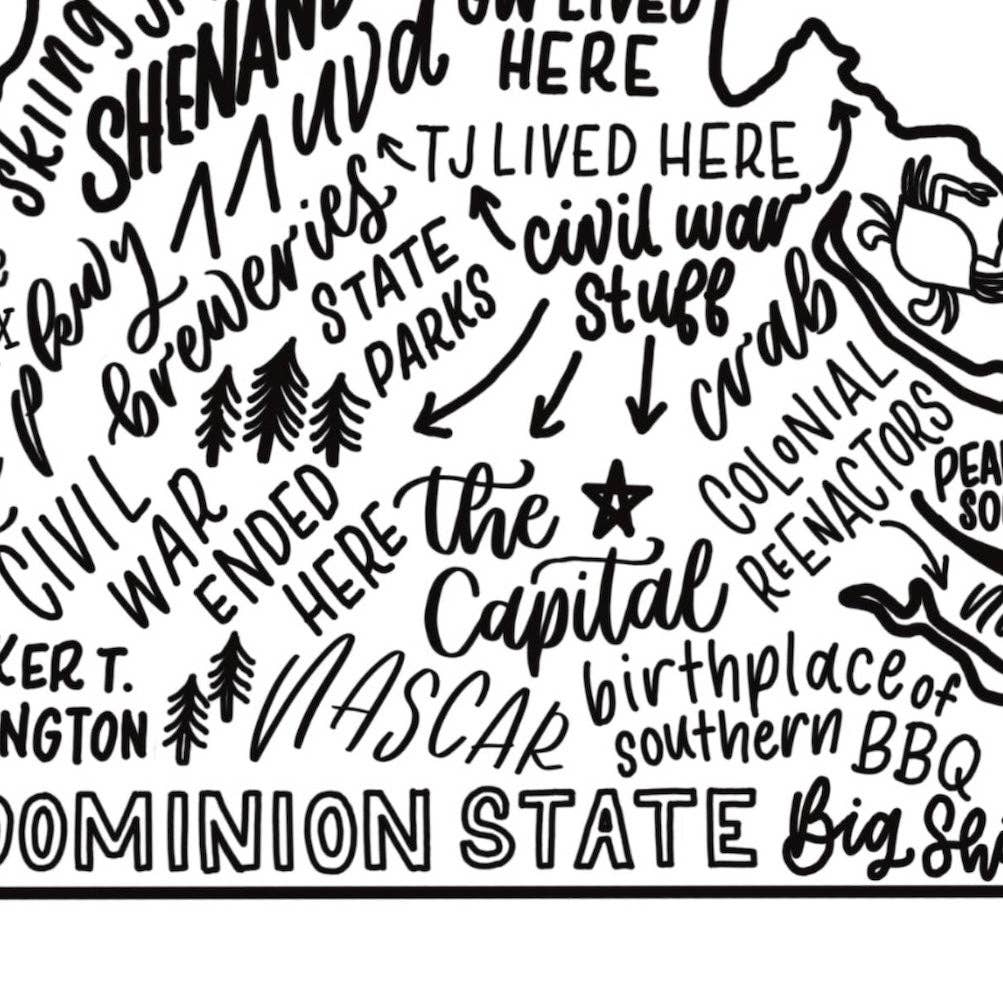 GW LIVED
HERE
skiing
SHENAND
uvd
TJ LIVED HERE
civil war
stuff
pkwy
breweries
STATE
PARKS
crab
COLONIAL
REENACTORS
PEA
SO
CIVIL
WAR
ENDED
HERE
the
Capital
KER T.
NGTON
NASCAR
birthplace of
southern BBQ
DOMINION STATE
Big Sh